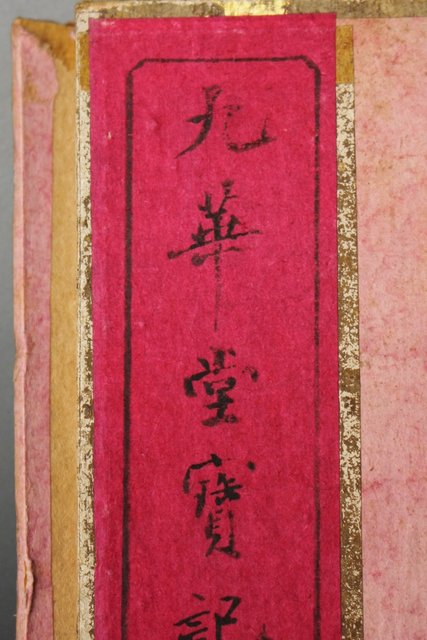 九華堂寶記